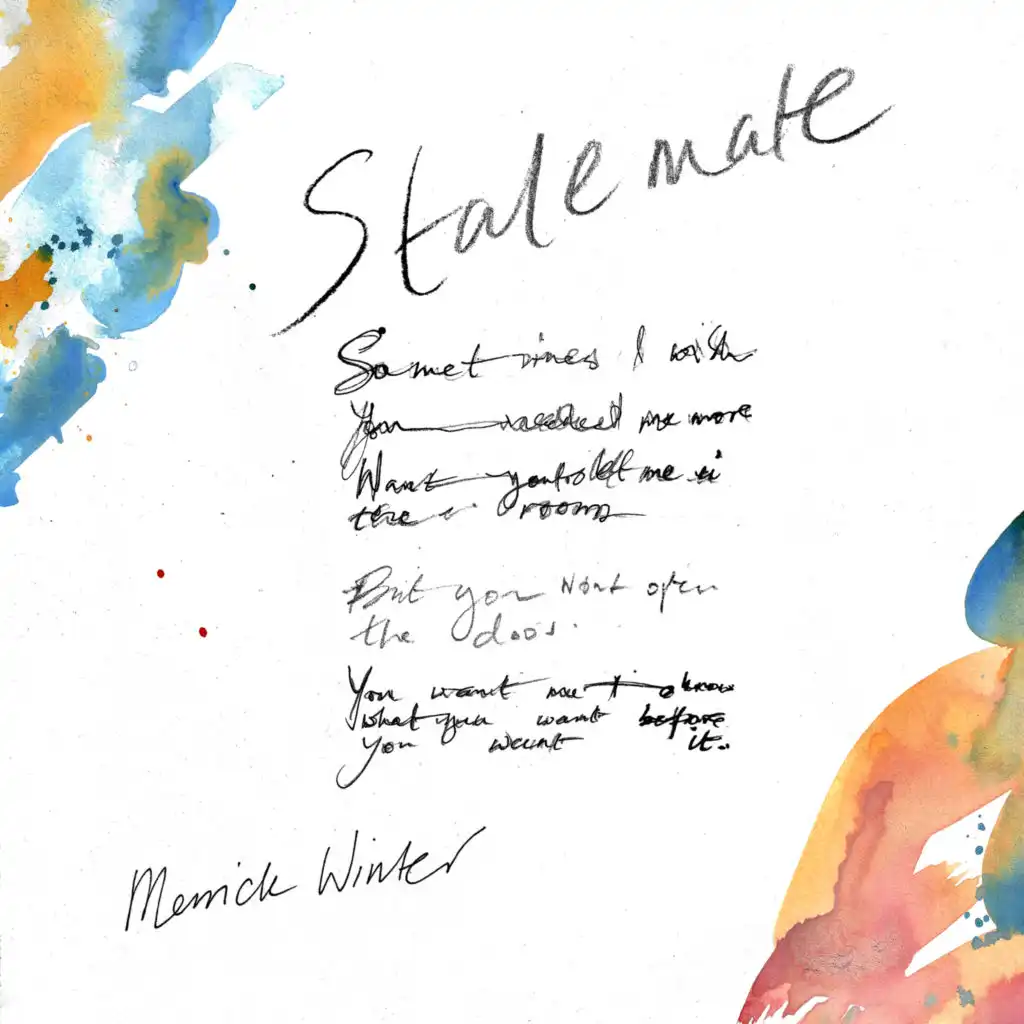 Stalemate
Sometimes I wish
You needed me more
Want you to let me in
the rooms
But you wont open
the door.
You want me to know
what you want before
you want it.
Merrick Winter